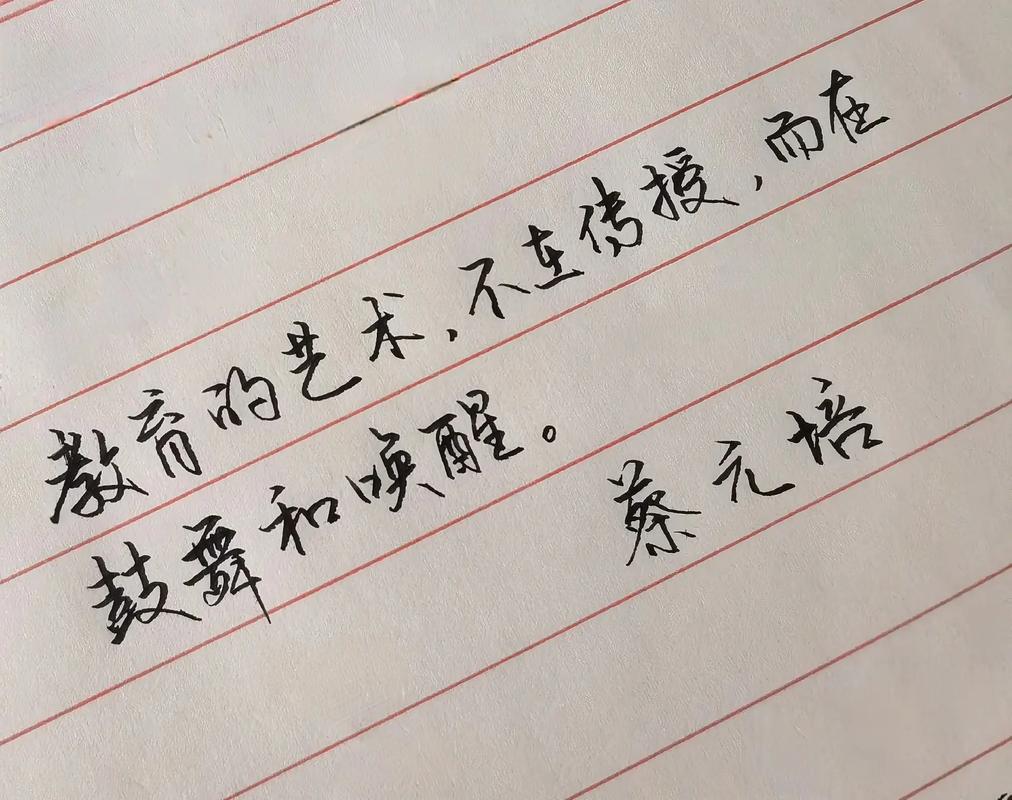 教育的艺术,不在传授,而在
鼓舞和唤醒。
蔡元培